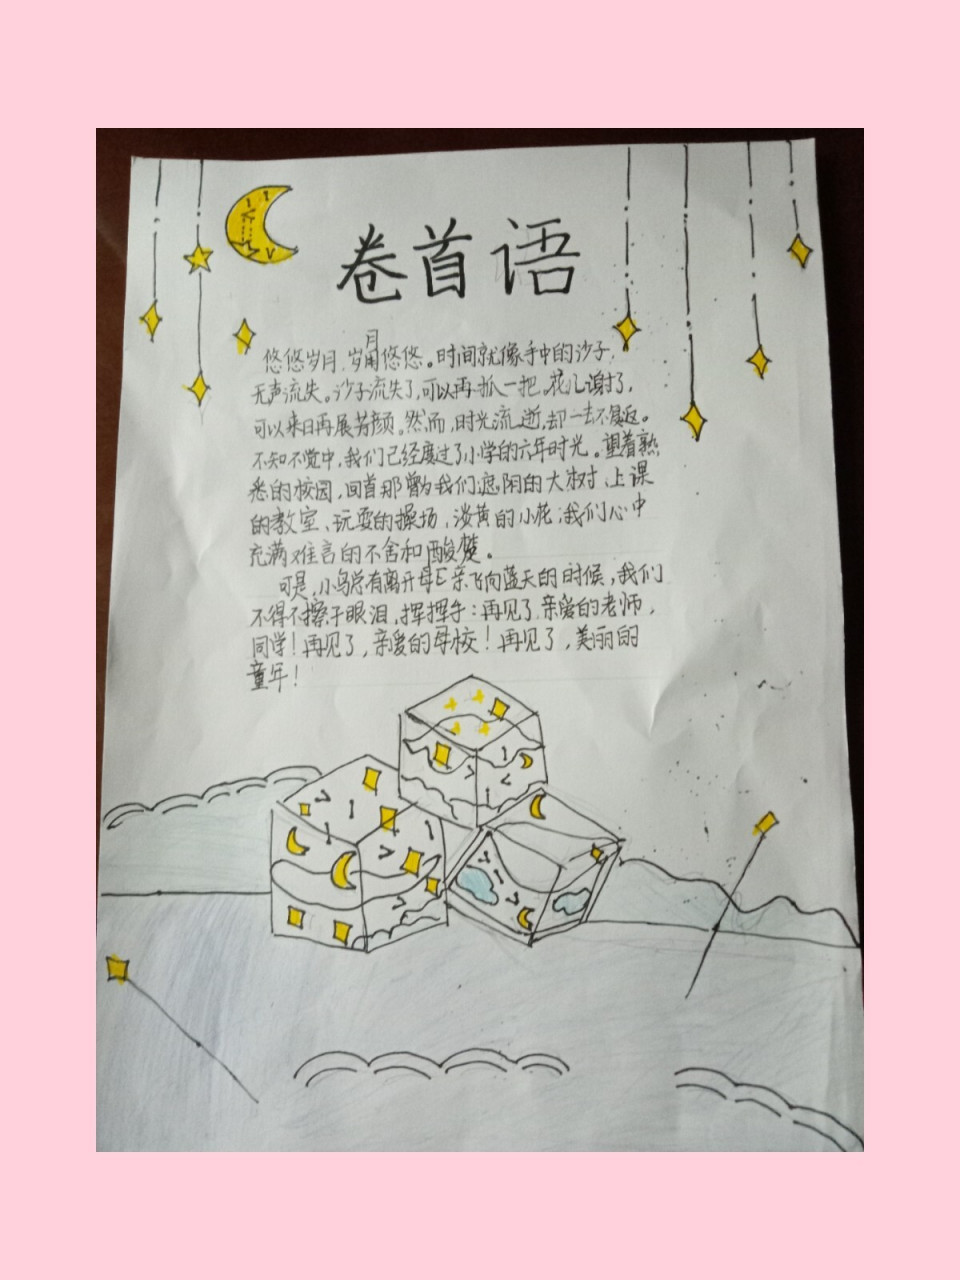 卷首语
悠悠岁月,岁月悠悠。时间就像手中的沙子,
无声流失。沙子流失了,可以再抓一把,花儿谢了,
可以来日再展芳颜。然而,时光流逝,却一去不复返。
不知不觉中,我们已经度过了小学的六年时光。望着熟
悉的校园,回首那曾为我们遮阴的大树、上课
的教室、玩耍的操场,淡黄的小花,我们心中
充满难言的不舍和酸楚。
可是,小鸟总有离开母亲飞向蓝天的时候,我们
不得不擦干眼泪,挥挥手:再见了,亲爱的老师,
同学!再见了,亲爱的母校!再见了,美丽的
童年!